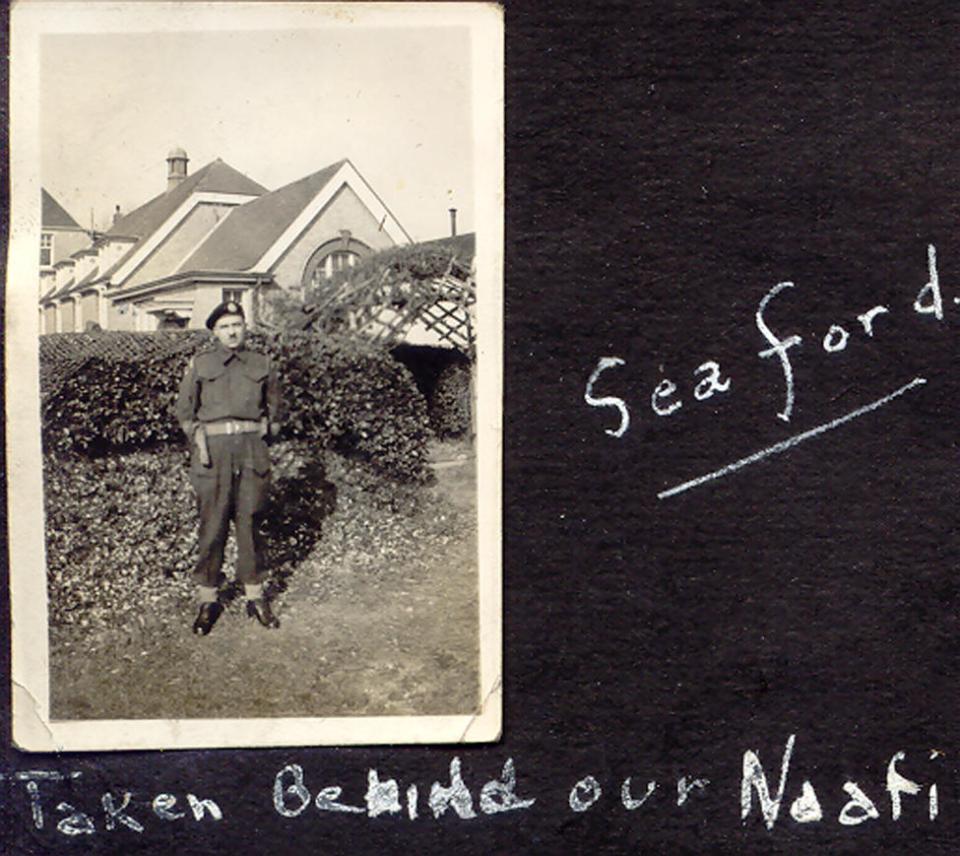 Seaford.
Taken Behind our Naafi